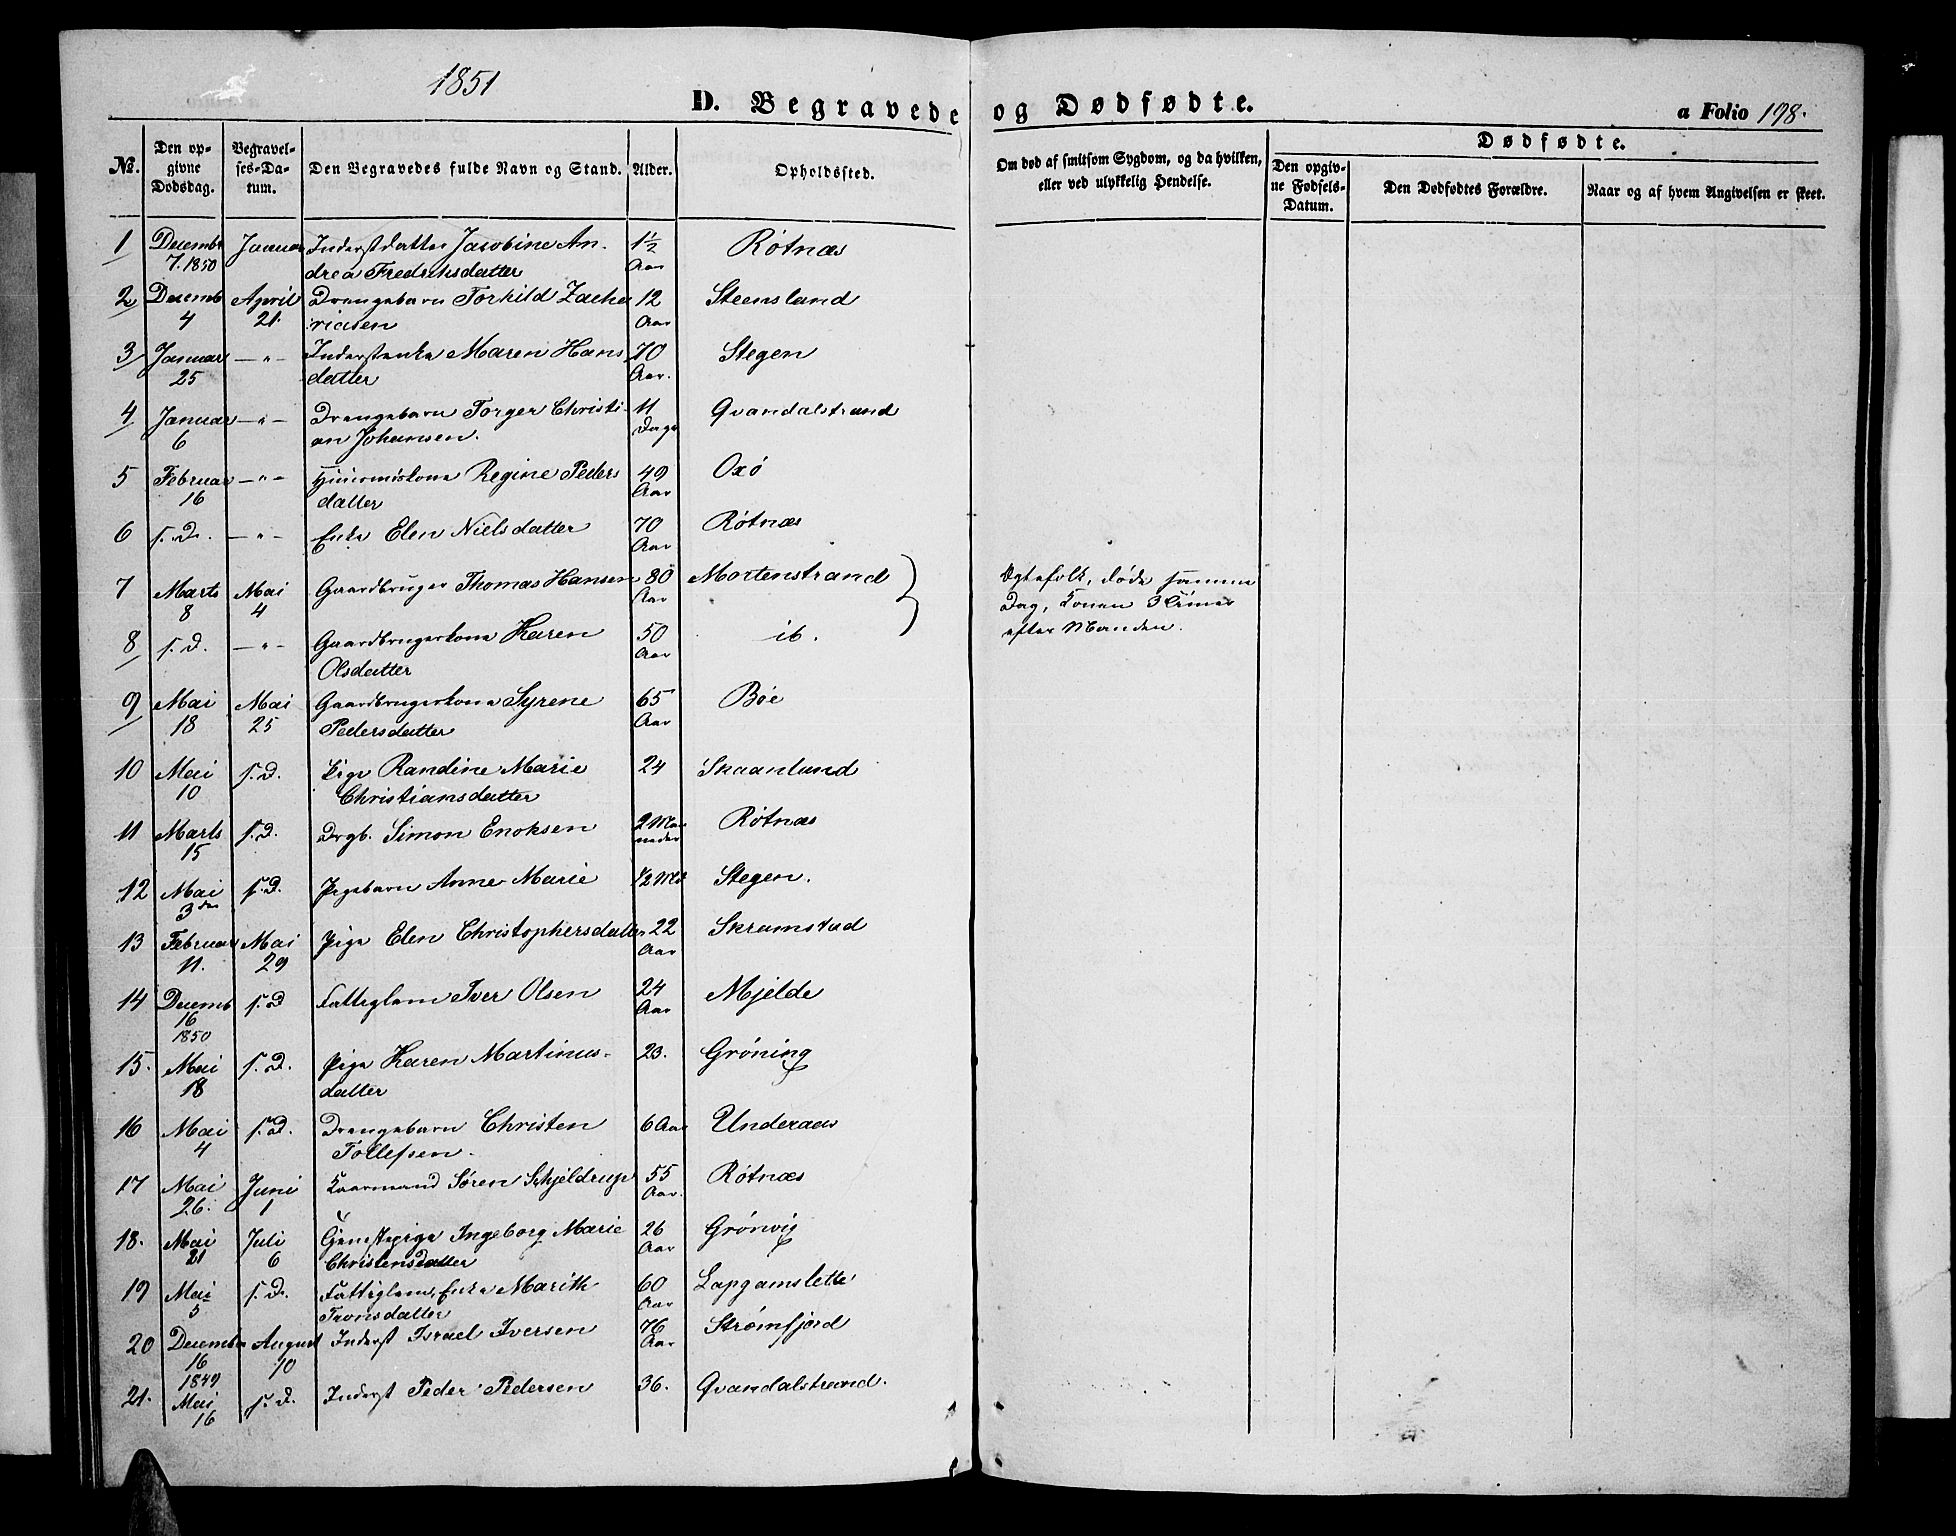 1851
D. Begravede og Dødfødte.
a Folio 198.
No.
Den opgivne Dødsdag.
Begravelses-Datum.
Den Begravedes fulde Navn og Stand.
Alder.
Opholdssted.
Om død af smitsom Sygdom, og da hvilken, eller ved ulykkelig Hendelse.
Dødfødte.
Den opgivne Fødsels-Datum.
Den Dødfødtes Forældre.
Naar og af hvem Angivelsen er skeet.
1 Decembr Januar Inderst datter Jacobine An- 1½ Røtnæs
7. 1850 drea Fredriksdatter Aar
2 Decemb April Drengebarn Torkild Zacha 12 Steensland
4 21. riasen Aar
3 Januar -"- Inderstenke Maren Hans 70 Stegen
25 datter Aar.
4 Januar -"- Drengebarn Torger Christi- 11 Qvandalstrand
6 an Johansen. Dage
5 Februar -"- Regine Peders 49 Oxø
16 datter Aar
6 s.D. -"- Enke Elen Nielsdatter 70 Røtnæs
Aar
7 Marts Mai Gaardbruger Thomas Hansen 80 Mortenstrand } Egtefolk, døde samme
8 4 Aar Dag, Konen 3 Timer
8 s.D. -"- Gaardbrugerkone Karen 50 ib. efter Manden.
Olsdatter Aar
9 Mai Mai Gaardbrugerkone Syrene 65 Bøe
18 25 Pedersdatter Aar
10 Mai s.D. Pige Randine Marie 24 Skaanland
10 Christiansdatter
11 Marts s.D. Drgb. Simon Enoksen 2 Maa Røtnæs
15 neder
12 Mai s.D. Pigebarn Anne Marie ½ Md Stegen.
3die
13 Februar Mai Pige Elen Christophersdatter 22 Skramstad
11. 29 Aar
14 Decemb s.D Fattiglem Iver Olsen 24 Mjelde
16 Aar
1850
15. Mai s.D. Pige Karen Martinus- 23. Grøning
18 datter
16 Mai s.D. Drengebarn Christen 6 Aar Underaas
4 Tollefsen.
17 Mai Juni Kaarmand Søren Schjeldrup 55 Røtnæs
26. 1 Aar.
18. Mai Juli Tjenestepige Ingeborg Marie 26 Grønvig
21 6 Christensdatter Aar
19 Mai s.D. Fattiglem, Enke Marith 60 Lapgamslette
5 Tronsdatter Aar
20 Decembr August Inderst Israel Iversen 76 Strømfjord
16 10 Aar
1849
21. Mai s.D. Inderst Peder Pedersen 36. Qvandalstrand.
16